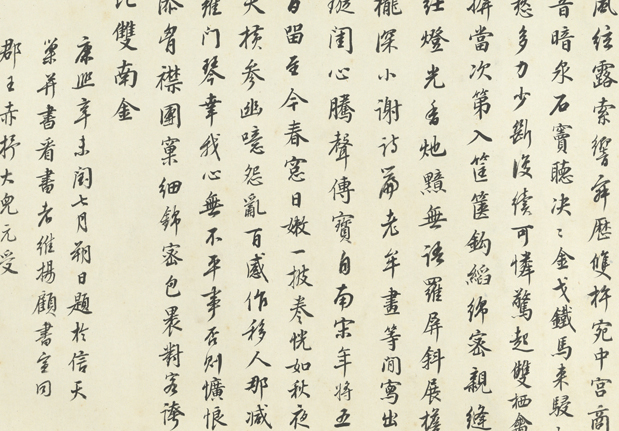 風弦露索響寂歷雙杵宛中宮商
音暗泉石竇聽決〻金戈鐵馬来
愁多力少斷復續可憐驚起雙栖禽
擀當次第入筐篋鈎縚綿密親縫
紅燈光香灺黯無語羅屏斜展
櫳深小謝詩篇老牟畫等閒寫出
璇閨心騰聲傳寶自南宋年將五
百留至今春窗日嫩一披卷恍如秋夜
天横參幽噫怨亂百感作移人那減
雍門琴幸我心無不平事否則懭悢
添胷襟團窠細錦密包裹對客誇
比雙南金
康熙辛未閏七月朔日題於信天
巢并書看書者維揚顧書宣同
郡王赤抒大兒元受